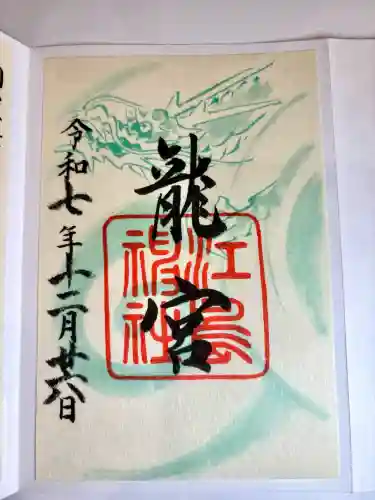 龍宮
江島神社
令和七年十二月廿六日